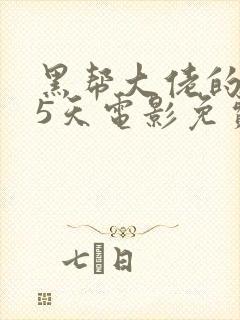 黑帮大佬的
5天电影免
七日